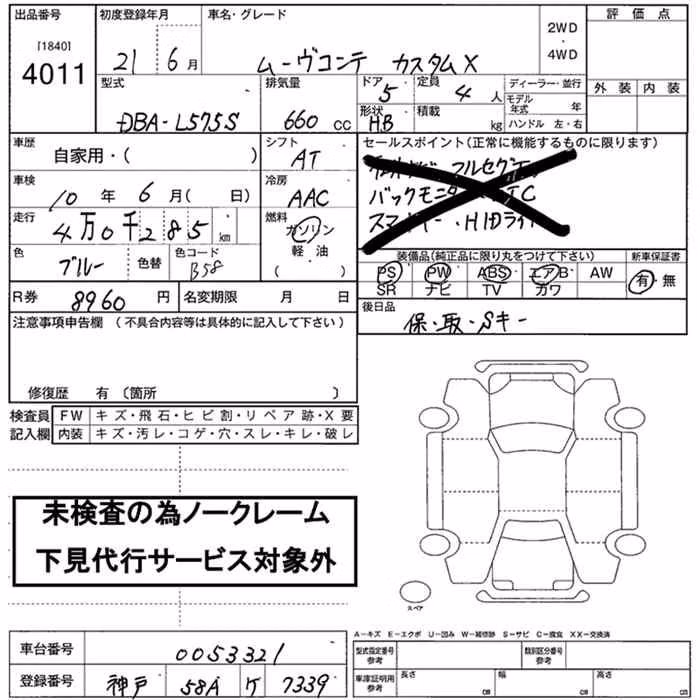 出品番号
[1840]
4011
初度登録年月
21 6月
車名・グレード
ムーヴコンテ カスタムX
2WD
・
4WD
評価点
外装 内装
型式
DBA-L575S
排気量
660 CC
ドア
5
定員
4人
形状
HB
積載
kg
ディーラー・並行
モデル年式 年
ハンドル 左・右
車歴
自家用・( )
シフト
AT
車検
10年 6月( 日)
冷房
AAC
走行
4万0千285km
燃料
ガソリン
軽油
( )
色
ブルー
色替
色コード
B58
R券 8960円
名変期限 月 日
セールスポイント(正常に機能するものに限ります)
フルセグTV
バックモニター ETC
HIDライト
装備品(純正品に限り丸をつけて下さい)
新車保証書
PS PW ABS エアB AW
SR ナビ TV カワ
有・無
後日品
保・取・Sキー
注意事項申告欄(不具合内容等は具体的に記入して下さい)
修復歴 有〔箇所 〕
検査員記入欄
FW キズ・飛石・ヒビ割・リペア跡・X要
内装 キズ・汚レ・コゲ・穴・スレ・キレ・破レ
未検査の為ノークレーム
下見代行サービス対象外
スペア
A−キズ E−エクボ U−凹み W−補修跡 S−サビ C−腐食 XX−交換済
車台番号 0053321
登録番号 神戸 58A ケ 7339
型式指定番号
参考
類別区分番号
参考
車庫証明用
参考
長さ cm
幅 cm
高さ cm